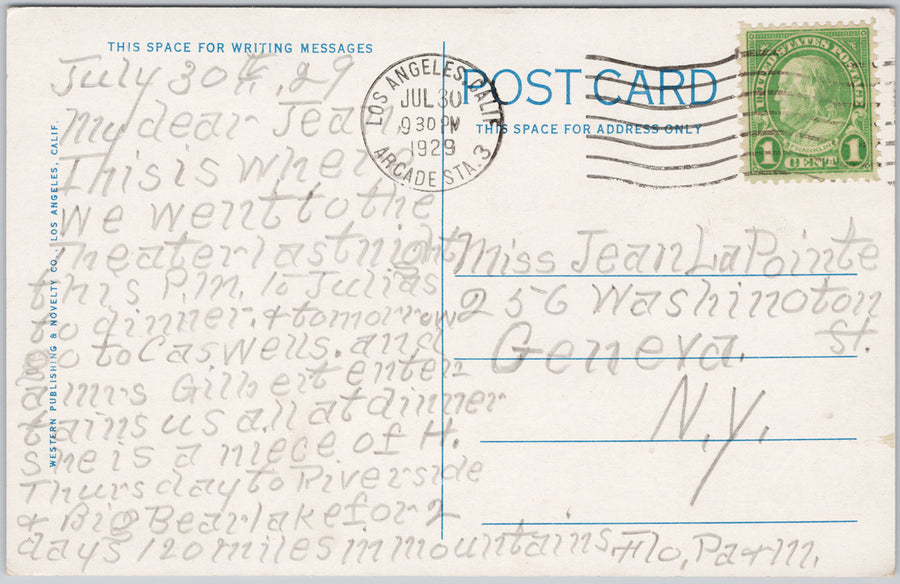 THIS SPACE FOR WRITING MESSAGES
POST CARD
THIS SPACE FOR ADDRESS ONLY
WESTERN PUBLISHING & NOVELTY CO., LOS ANGELES, CALIF.
LOS ANGELES, CALIF.
JUL 30
9 30 PM
1929
ARCADE STA. 3
UNITED STATES POSTAGE
FRANKLIN
1 CENT 1
July 30th, 29
My dear Jean
This is where
We went to the
Theater last night
this P.M. to Julias
to dinner, & tomorrow
to Caswells. and
a Mrs Gilbert enter
tains us all at dinner
She is a niece of H.
Thursday to Riverside
& Big Bear lake for 2
days 120 miles in mountains. Flo, Pa & M.
Miss Jean LaPointe
256 Washington
St.
Geneva.
N.Y.